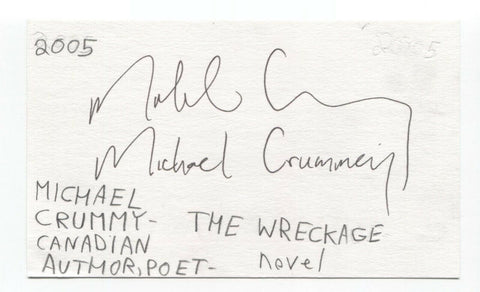 2005 2005
Michael Crummey
Michael Crummey
MICHAEL
CRUMMY- THE WRECKAGE
CANADIAN
AUTHOR, POET- novel